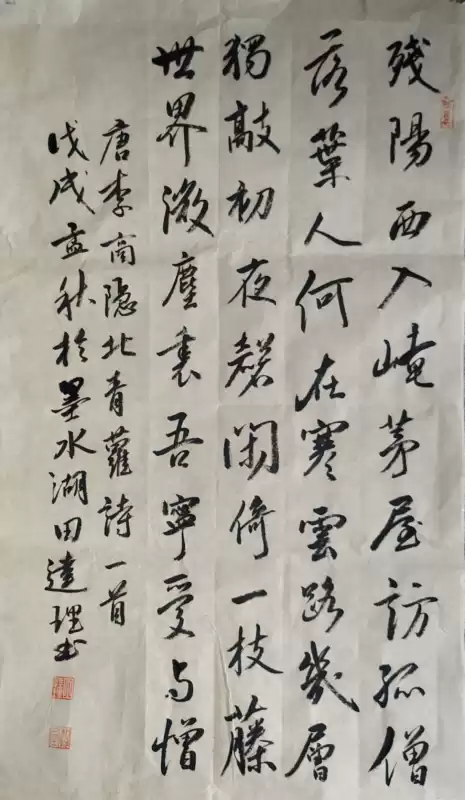 残陽西入崦茅屋訪孤僧
落葉人何在寒雲路幾層
獨敲初夜磬閑倚一枝藤
世界微塵裏吾寧受与憎
唐李商隐北青蘿詩一首
戊戌孟秋於墨水湖田達理书